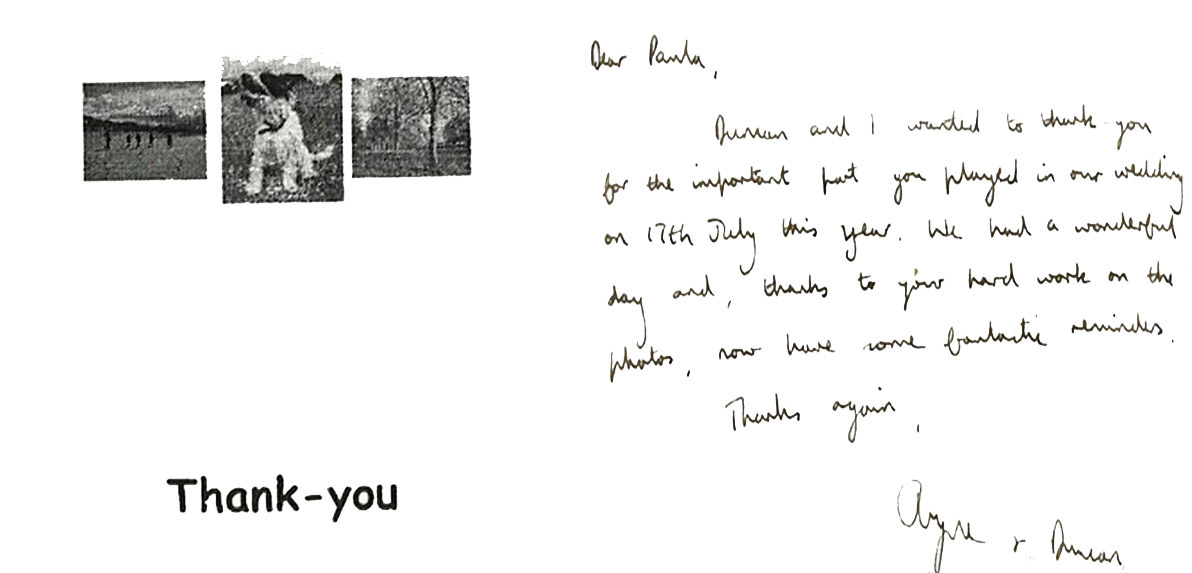 Thank-you
Dear Paula,
Duncan and I wanted to thank-you
for the important part you played in our wedding
on 17th July this year. We had a wonderful
day and, thanks to your hard work on the
photos, now have some fantastic reminders.
Thanks again,
& Duncan